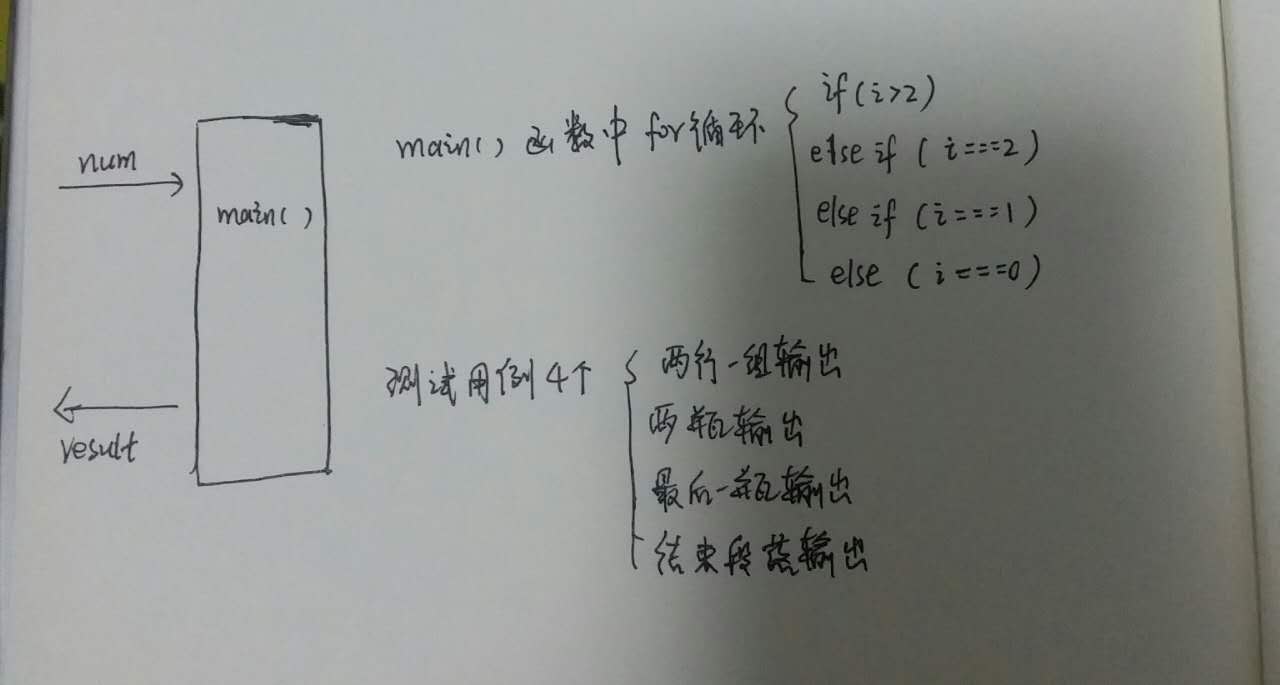 num
main()
result
main() 函数中 for循环
if(i>2)
else if (i===2)
else if (i===1)
else (i===0)
测试用例4个
两行一组输出
两瓶输出
最后一瓶输出
结束段落输出